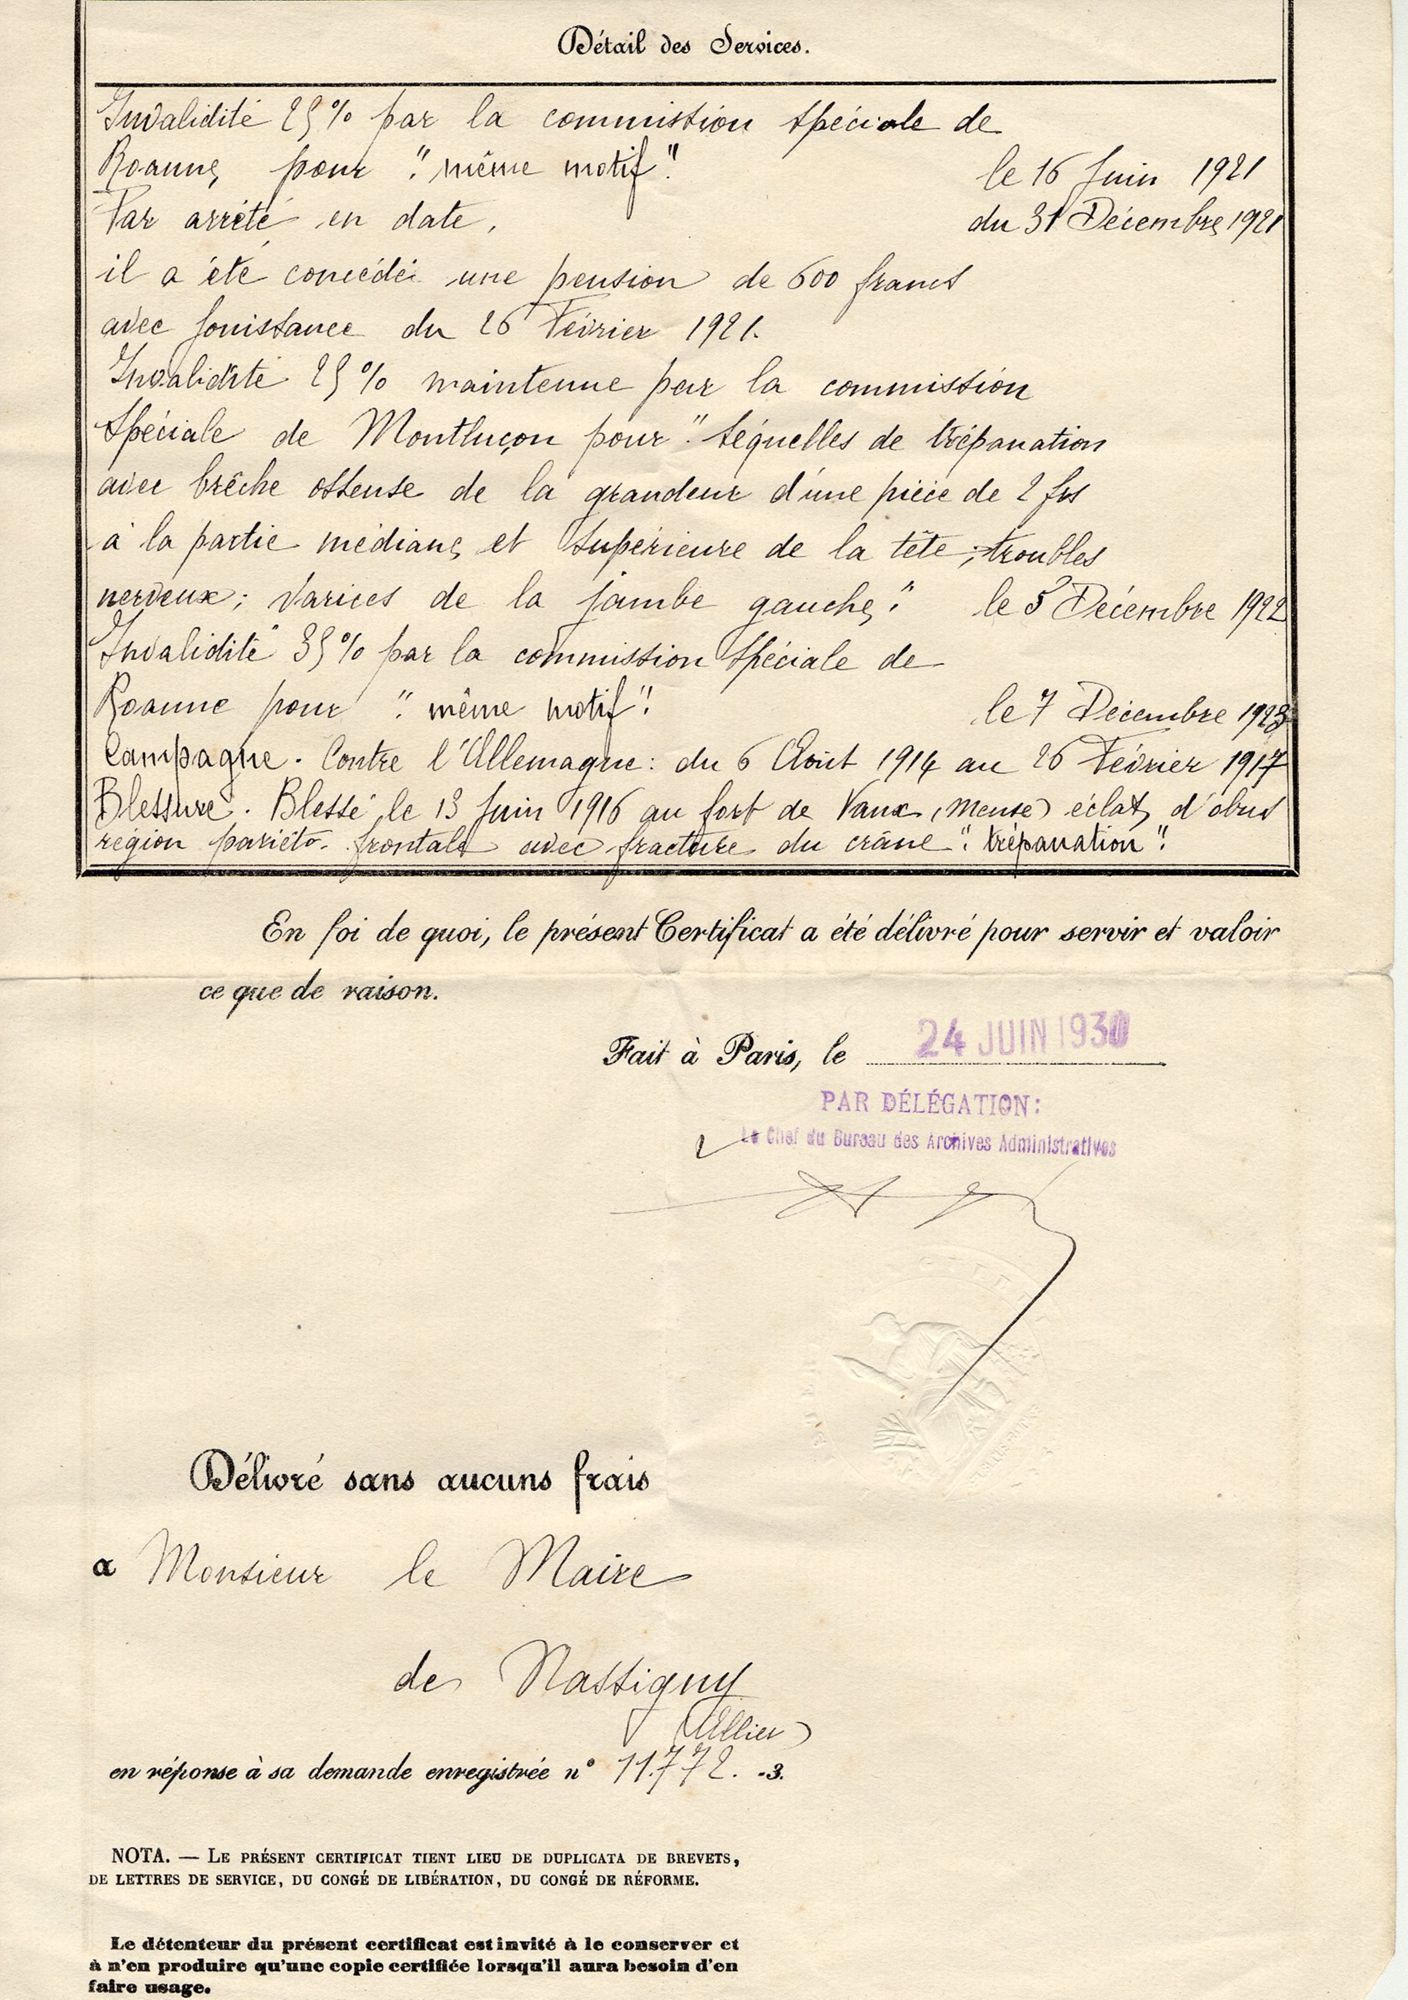 Détail des Services.
Invalidité 25% par la commission spéciale de
Roanne, pour "même motif". le 16 Juin 1921
Par arrêté en date, du 31 Décembre 1921
il a été concédé une pension de 600 francs
avec jouissance du 26 Février 1921.
Invalidité 25% maintenue par la commission
spéciale de Montluçon pour "séquelles de trépanation
avec brêche osseuse de la grandeur d'une pièce de 2 frs
à la partie médiane et supérieure de la tête; troubles
nerveux; varices de la jambe gauche," le 5 Décembre 1922
Invalidité 35% par la commission spéciale de
Roanne pour "même motif". le 7 Décembre 1923
Campagne. Contre l'Allemagne: du 6 Août 1914 au 26 Février 1917
Blessure. Blessé le 13 Juin 1916 au fort de Vaux (Meuse) éclat d'obus
région pariéto-frontale avec fracture du crâne "trépanation".
En foi de quoi, le présent Certificat a été délivré pour servir et valoir
ce que de raison.
Fait à Paris, le 24 JUIN 1930
PAR DÉLÉGATION:
Le Chef du Bureau des Archives Administratives
Délivré sans aucuns frais
a Monsieur le Maire
de Nassigny
(Allier)
en réponse à sa demande enregistrée n° 11.772. -3.
NOTA. — LE PRÉSENT CERTIFICAT TIENT LIEU DE DUPLICATA DE BREVETS,
DE LETTRES DE SERVICE, DU CONGÉ DE LIBÉRATION, DU CONGÉ DE RÉFORME.
Le détenteur du présent certificat est invité à le conserver et
à n'en produire qu'une copie certifiée lorsqu'il aura besoin d'en
faire usage.